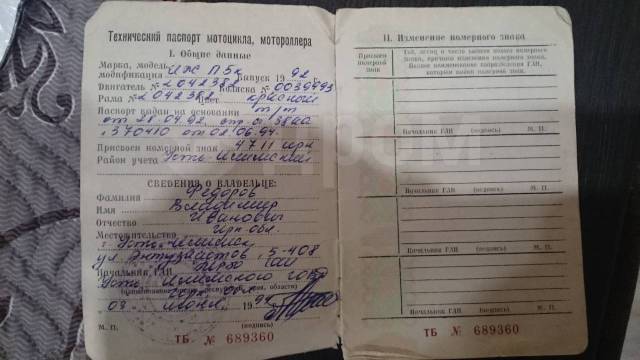 Технический паспорт мотоцикла, мотороллера
I. Общие данные
Марка, модель,
модификация ИЖ П5к Выпуск 1992
Двигатель № 2042381 Коляска № 0039493
Рама № 2042381 Цвет красный
Паспорт выдан на основании
от 21.04.92
370410 от 02.06.94.
Присвоен номерной знак 4711 ирн
Район учета Усть-Илимский
СВЕДЕНИЯ О ВЛАДЕЛЬЦЕ:
Фамилия Федоров
Имя Владимир
Отчество Иванович
Местожительство Ирк. обл.
г. Усть-Илимск
ул. Энтузиастов, 5-408
Начальник ГАИ
Усть-Илимского ГОВД
(наименование города, республики, края, области)
03 июня 1994
М. П. (подпись)
ТБ № 689360
II. Изменение номерного знака
Присвоен
номерной
знак
Год, месяц и число выдачи нового номерного
знака, причина изменения номерного знака.
Полное наименование подразделения ГАИ,
которым выдан номерной знак
Начальник ГАИ (подпись) М. П.
Начальник ГАИ (подпись) М. П.
Начальник ГАИ (подпись) М. П.
Начальник ГАИ (подпись) М. П.
ТБ № 689360